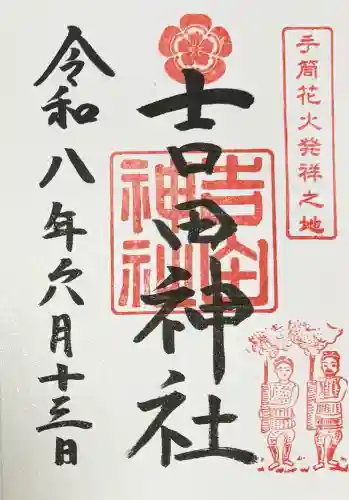 手筒花火発祥之地
吉田神社
吉田神社
令和八年六月十三日